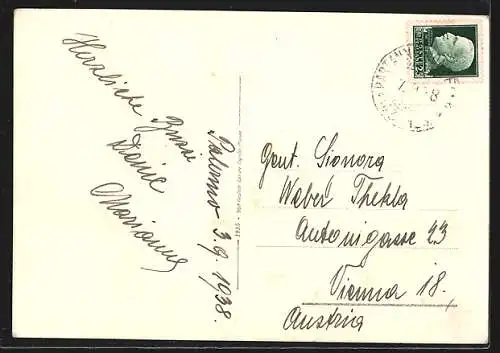 Herzliche
Grüsse
Deine
Marianne
Palermo 3.9.1938.
Gent. Signora
Weber Thekla
Antonigasse 23
Vienna 18.
Austria